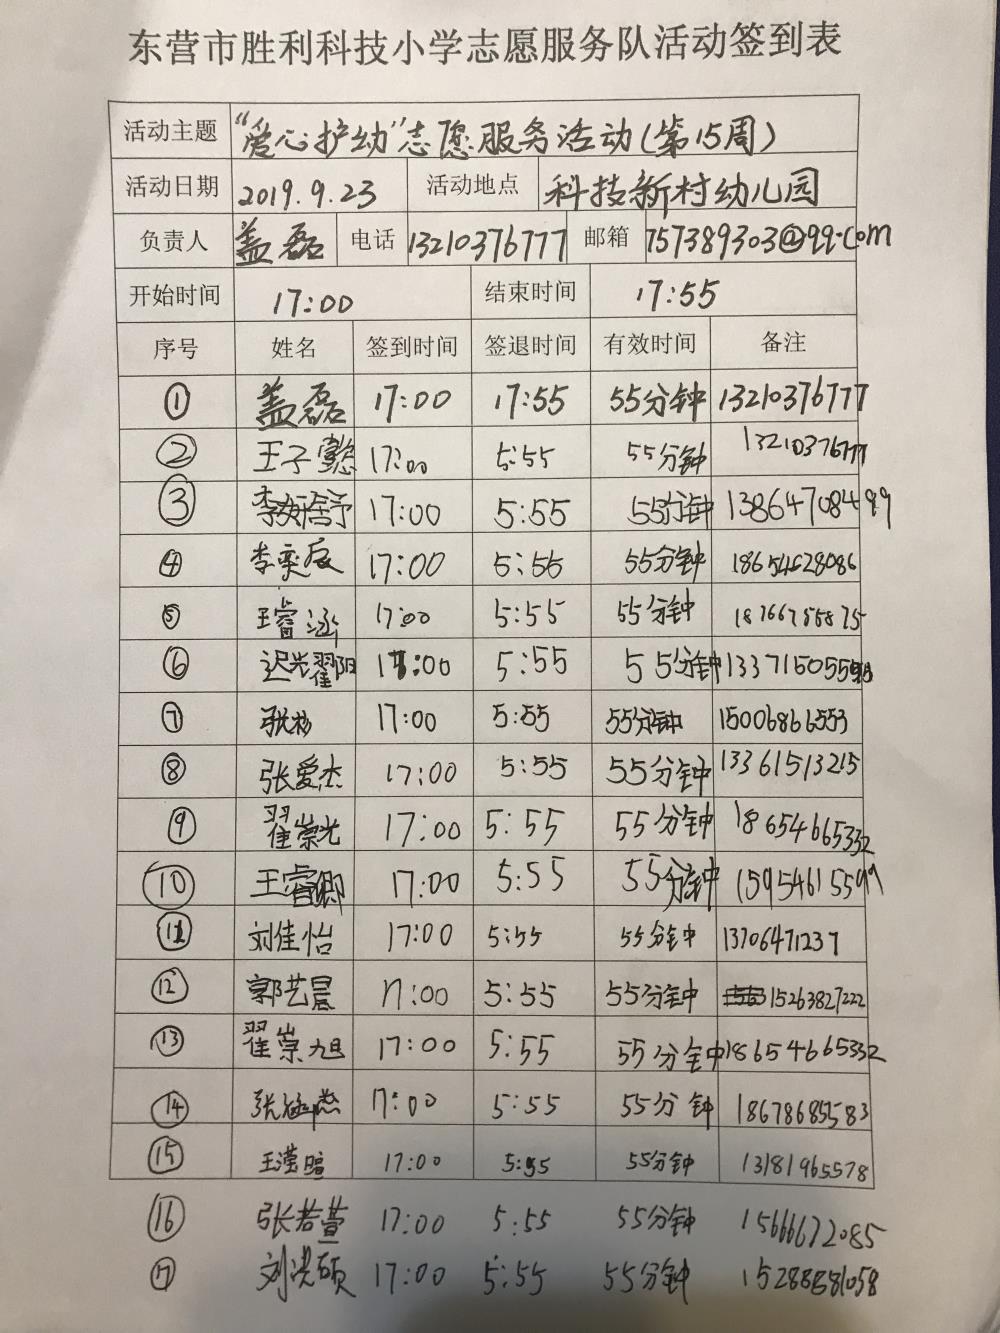 东营市胜利科技小学志愿服务队活动签到表
活动主题 “爱心护幼”志愿服务活动(第15周)
活动日期 2019.9.23 活动地点 科技新村幼儿园
负责人 盖磊 电话 13210376777 邮箱 757389303@qq.com
开始时间 17:00 结束时间 17:55
序号 姓名 签到时间 签退时间 有效时间 备注
① 盖磊 17:00 17:55 55分钟 13210376777
② 王子懿 17:00 5:55 55分钟 13210376777
③ 李妍舍予 17:00 5:55 55分钟 13864708499
④ 李奕辰 17:00 5:55 55分钟 18654628086
⑤ 王睿涵 17:00 5:55 55分钟 18766755875
⑥ 迟光翟阳 17:00 5:55 55分钟
⑦ 张杨 17:00 5:55 55分钟 15006866553
⑧ 张爱杰 17:00 5:55 55分钟 13361513215
⑨ 翟崇光 17:00 5:55 55分钟 18654665332
⑩ 王睿卿 17:00 5:55 55分钟 15954615599
⑪ 刘佳怡 17:00 5:55 55分钟 13706471237
⑫ 郭艺晨 17:00 5:55 55分钟 15263827222
⑬ 翟崇旭 17:00 5:55 55分钟 18654665332
⑭ 张涵 17:00 5:55 55分钟 18678685583
⑮ 王滢暄 17:00 5:55 55分钟 13181965578
⑯ 张若萱 17:00 5:55 55分钟 15666672085
⑰ 刘洪硕 17:00 5:55 55分钟 15288881058